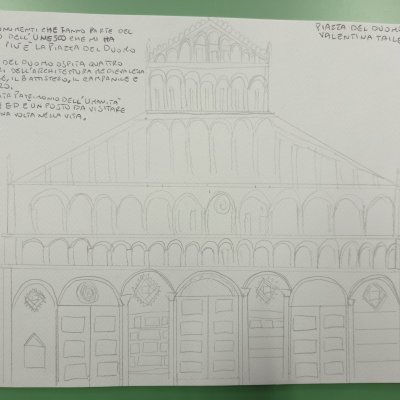 ONUMENTI CHE FANNO PARTE DEL
O DELL'UNESCO CHE MI HA
PIÙ È LA PIAZZA DEL DUOMO
DEL DUOMO OSPITA QUATTRO
RI DELL'ARCHITETTURA MEDIEVALE
, IL BATTISTERO, IL CAMPANILE E
TA PATRIMONIO DELL'UMANITÀ
ED È UN POSTO DA VISITARE
NA VOLTA NELLA VITA.
PIAZZA DEL DUOMO
VALENTINA TAILE